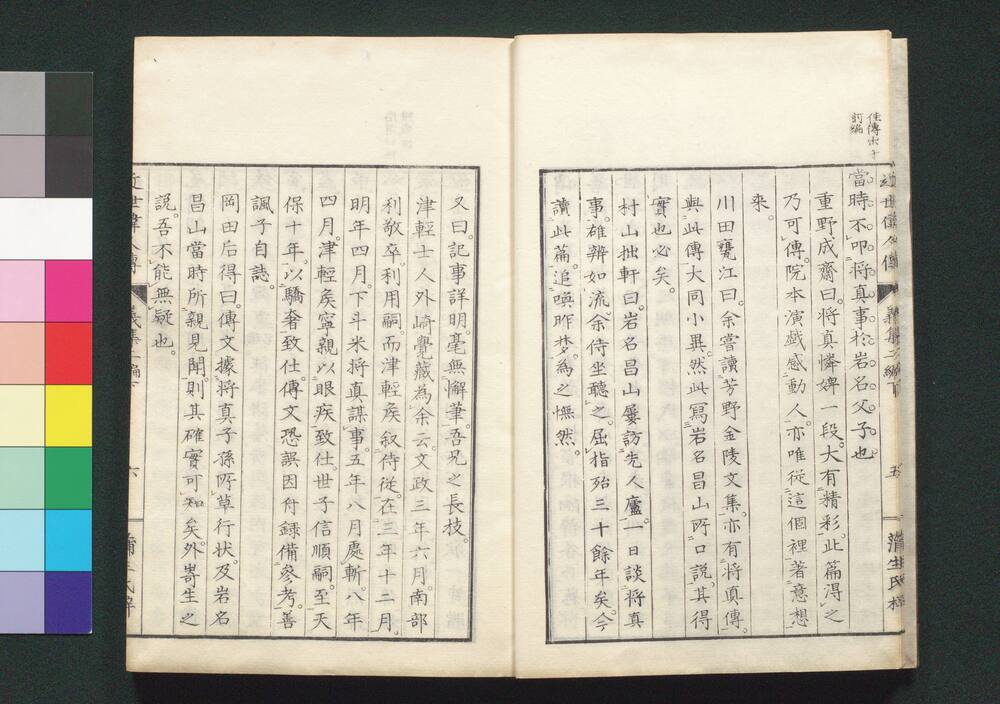 佳傳出于
前編
近世偉人傳 義集二編下 五 蒲生氏梓
當時不叩將真事於岩名父子也
重野成齋曰。將真憐婢一段。大有精彩。此篇得之
乃可傳。院本演戲感動人。亦唯從這個裡著意想
來。
川田甕江曰。余嘗讀芳野金陵文集。亦有將眞傳。
與此傳大同小異。然此寫岩名昌山所口說。其得
實也必矣。
村山拙軒曰。岩名昌山屢訪先人廬。一日談將真
事。雄辨如流。余侍坐聽之。屈指殆三十餘年矣。今
讀此篇。追喚昨梦。為之憮然。
又曰。記事詳明。毫無懈筆。吾兄之長技。
津輕士人外崎覺藏為余云。文政三年六月。南部
利敬卒。利用嗣。而津輕矦叙侍從。在三年十二月。
明年四月。下斗米將真謀事。五年八月處斬。八年
四月。津輕矦寧親以眼疾致仕。世子信順嗣。至天
保十年。以驕奢致仕。傳文恐誤因付録備參考。善
諷子自誌。
岡田后得曰。傳文據將真子孫所草行状。及岩名
昌山當時所親見聞。則其確實可知矣。外嵜生之
説。吾不能無疑也。
近世偉人傳 義集二編下 六 蒲生氏梓